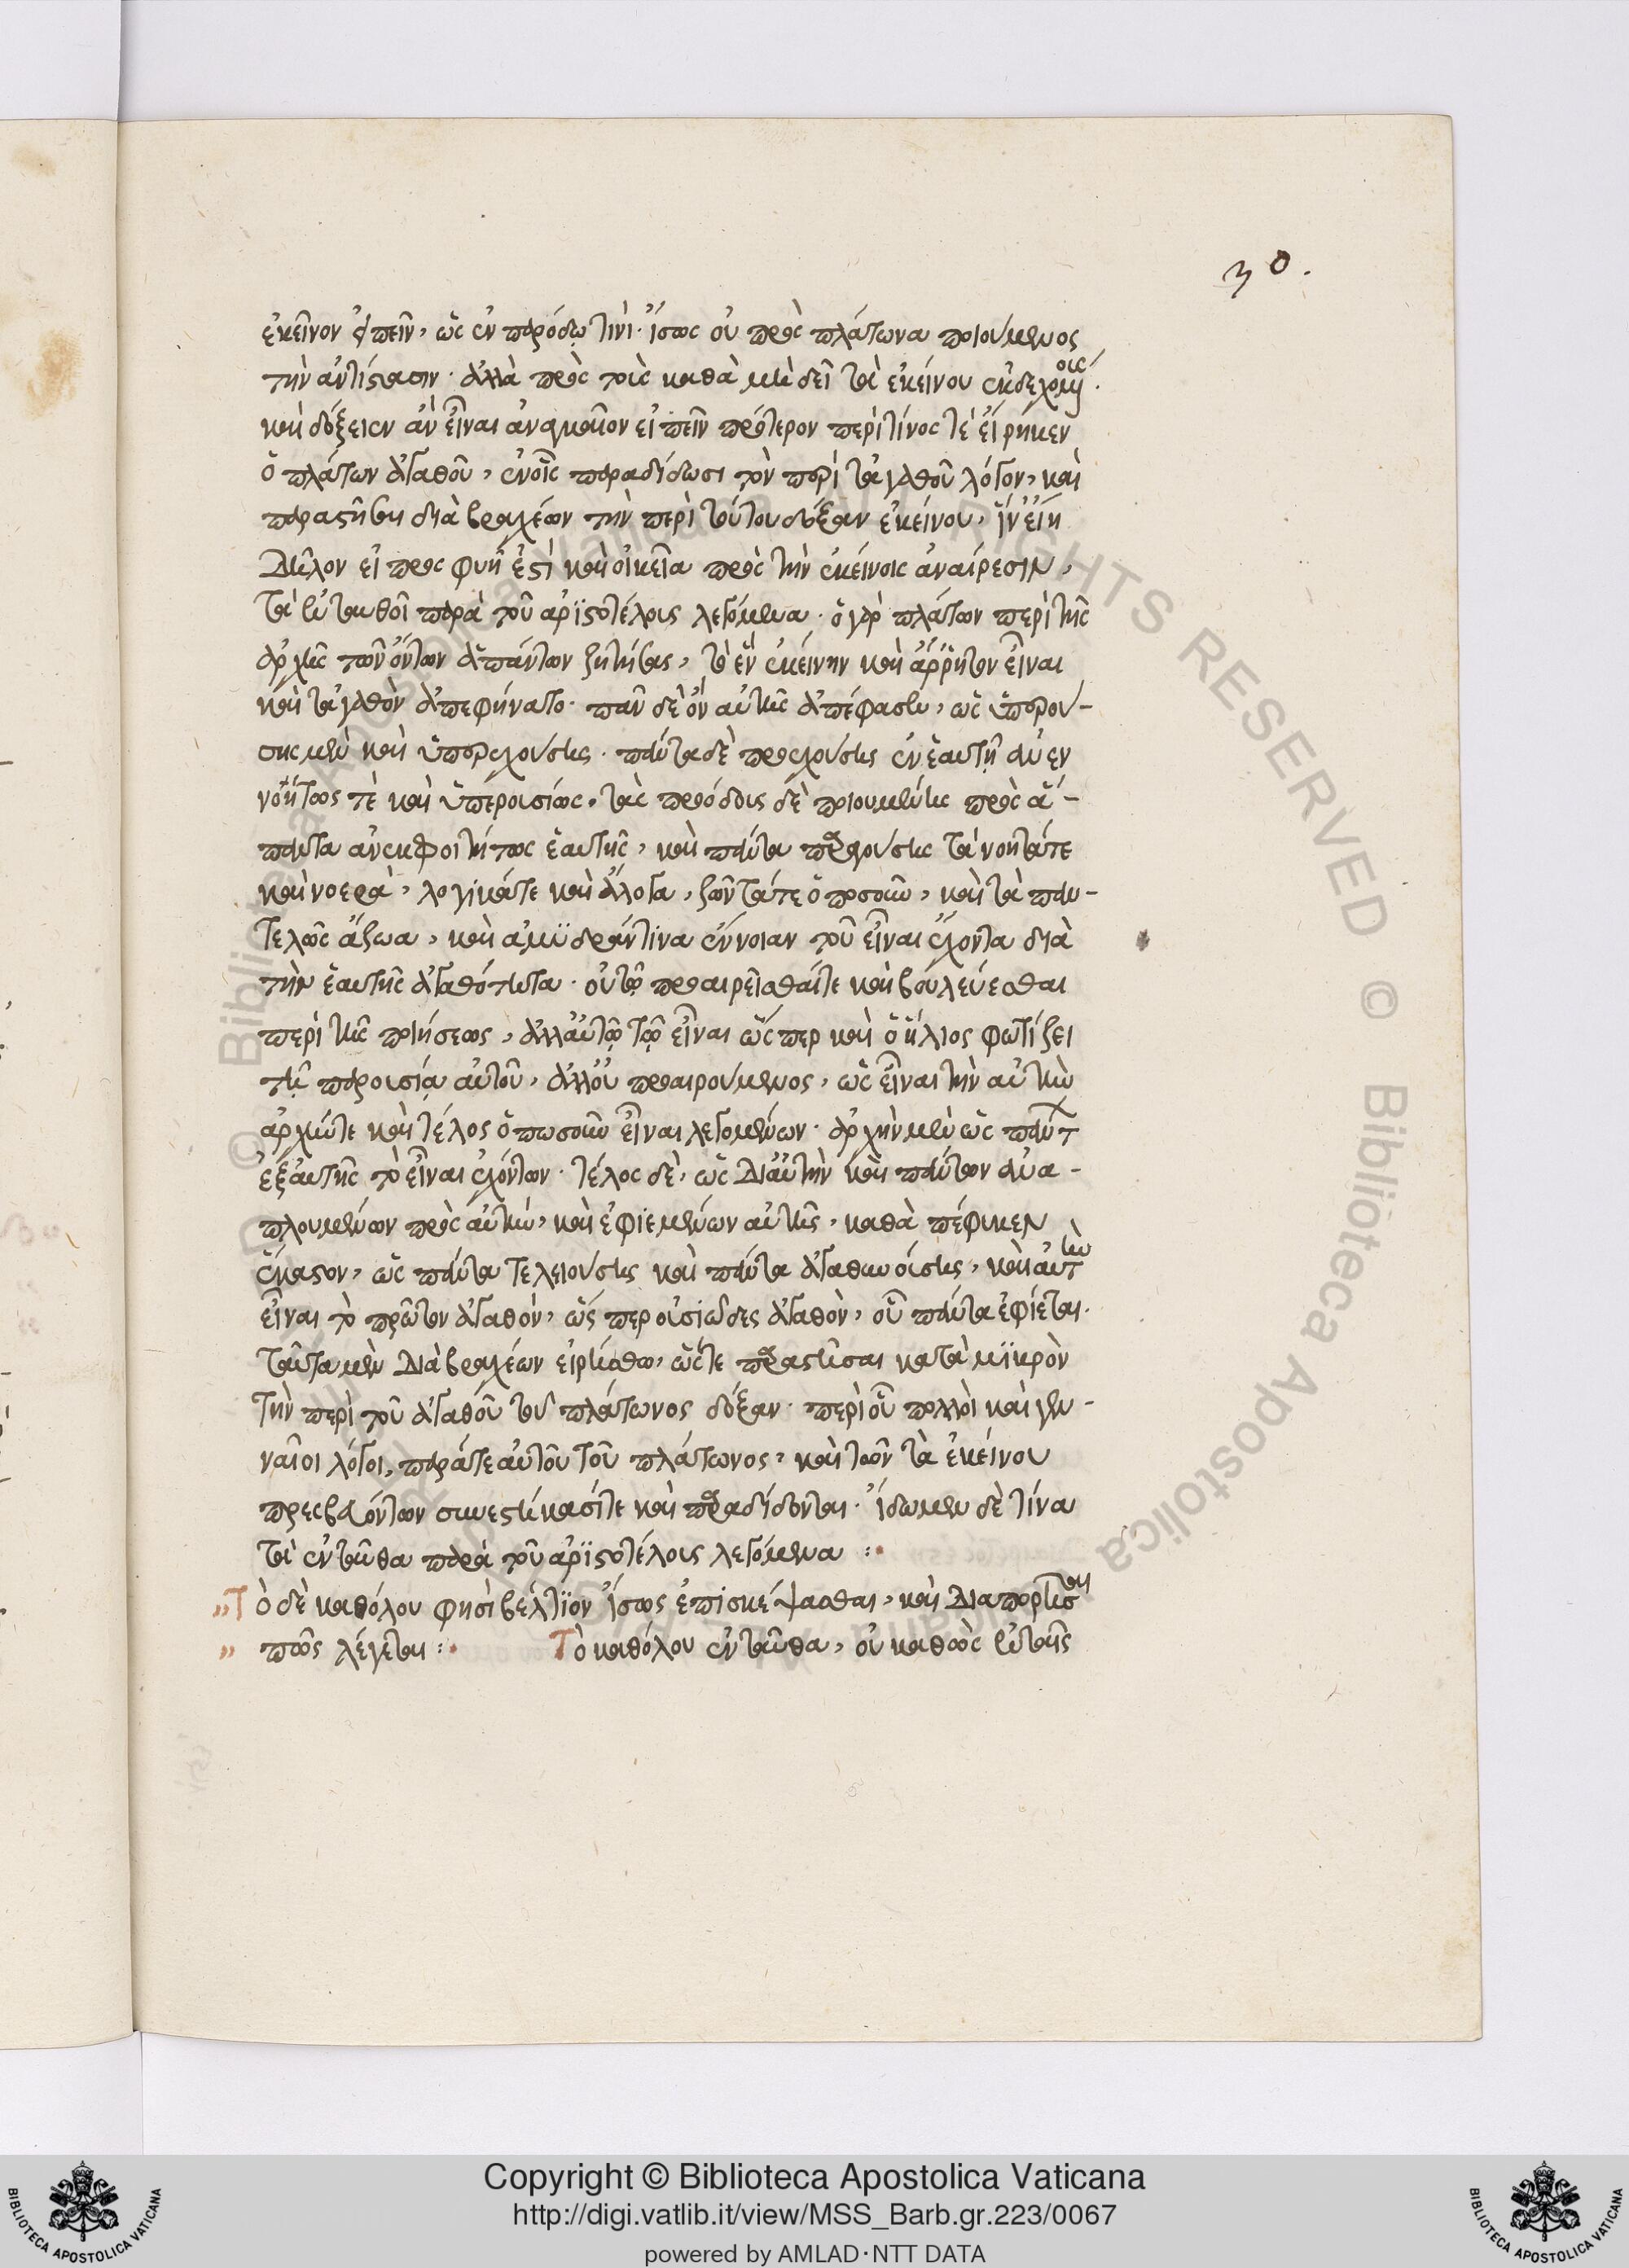 30.
ἐκεῖνον εἰπεῖν, ὡς ἐν παρόδῳ τινὶ· ἴσως οὐ πρὸς πλάτωνα ποιούμενος
τὴν ἀντίστασιν· ἀλλὰ πρὸς τοὺς καθὰ μὴ δεῖ τὰ ἐκείνου ἐκδεχομένους.
καὶ δόξειεν ἂν εἶναι ἀναγκαῖον εἰπεῖν πρότερον περὶ τίνος τέ εἴρηκεν
ὁ πλάτων ἀγαθοῦ, ἐν οἷς παραδίδωσι τὸν περὶ τἀγαθοῦ λόγον, καὶ
παραστῆσαι διὰ βραχέων τὴν περὶ τούτου δόξαν ἐκείνου, ἵν εἴη
Δῆλον εἰ προσφυῆ ἐστὶ καὶ οἰκεῖα πρὸς τὴν ἐκείνοις ἀναίρεσιν,
τὰ ἐνταυθοῖ παρὰ τοῦ ἀρϊστοτέλους λεγόμενα· ὁ γὰρ πλάτων περὶ τῆς
ἀρχῆς τῶν ὄντων ἁπάντων ζητήσας, τὸ ἓν ἐκείνην καὶ ἄρρητον εἶναι
καὶ τἀγαθὸν ἀπεφήνατο· πᾶν δὲ ὂν αὐτῆς ἀπέφασεν, ὡς ὑπερού-
σης μὲν καὶ ὑπερεχούσης· πάντα δὲ προεχούσης ἐν ἑαυτῇ ἀνεν
νοήτως τὲ καὶ ὑπερουσίως· τὰς προόδους δὲ ποιουμένης πρὸς ἅ-
παντα ἀνεκφοιτήτως ἑαυτῆς, καὶ πάντα παραγούσης τὰ νοητά τε
καὶ νοερὰ, λογικά τε καὶ ἄλογα, ζῶντά τε ὁποσοῦν, καὶ τὰ παν-
τελῶς ἄζωα, καὶ ἀμϋδράν τινα ἔννοιαν τοῦ εἶναι ἔχοντα διὰ
τὴν ἑαυτῆς ἀγαθότητα· οὐ τῷ προαιρεῖσθαί τε καὶ βουλεύεσθαι
περὶ τῆς ποιήσεως, ἀλλ αὐτῷ τῷ εἶναι ὥσπερ καὶ ὁ ἥλιος φωτίζει
τῇ παρουσίᾳ αὐτοῦ, ἀλλ οὐ προαιρούμενος, ὡς εἶναι τὴν αὐτὴν
ἀρχήν τε καὶ τέλος ὁπωσοῦν εἶναι λεγομένων· ἀρχὴν μὲν ὡς πάντων
ἐξ αὐτῆς τὸ εἶναι ἐχόντων· τέλος δὲ, ὡς Δι αὐτὴν καὶ πάντων ἀνα-
πλουμένων πρὸς αὐτὴν, καὶ ἐφιεμένων αὐτῆς, καθὰ πέφυκεν
ἕκαστον, ὡς πάντα τελειούσης καὶ πάντα ἀγαθυνούσης, καὶ αὐτὴν
εἶναι τὸ πρῶτον ἀγαθόν, ὥσπερ οὐσιῶδες ἀγαθὸν, οὗ πάντα ἐφίεται.
ταῦτα μὲν Διὰ βραχέων εἰρήσθω, ὥστε παραστῆσαι κατὰ μϊκρὸν
τὴν περὶ τοῦ ἀγαθοῦ τοῦ πλάτωνος δόξαν· περὶ οὗ πολλοὶ καὶ γεν-
ναῖοι λόγοι, παρά τε αὐτοῦ τοῦ πλάτωνος, καὶ τῶν τὰ ἐκείνου
πρεσβευόντων συνεστήκασί τε καὶ παραδίδονται· ἴδωμεν δὲ τίνα
τὰ ἐνταῦθα παρὰ τοῦ ἀρϊστοτέλους λεγόμενα :·
,, Τὸ δὲ καθόλου φησὶ βέλτϊον ἴσως ἐπισκέψασθαι, καὶ Διαπορῆσαι
,, πῶς λέγεται :· Τὸ καθόλου ἐνταῦθα, οὐ καθὼς ἐν ταῖς
Copyright © Biblioteca Apostolica Vaticana
http://digi.vatlib.it/view/MSS_Barb.gr.223/0067
powered by AMLAD·NTT DATA
BIBLIOTECA APOSTOLICA VATICANA
BIBLIOTECA APOSTOLICA VATICANA